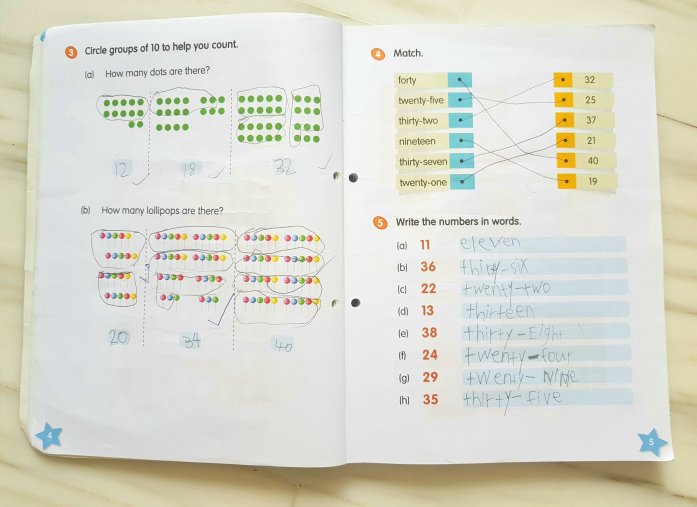 3 Circle groups of 10 to help you count.
(a) How many dots are there?
12 18 32
(b) How many lollipops are there?
20 34 40
4
4 Match.
forty 32
twenty-five 25
thirty-two 37
nineteen 21
thirty-seven 40
twenty-one 19
5 Write the numbers in words.
(a) 11 eleven
(b) 36 thirty-six
(c) 22 twenty-two
(d) 13 thirteen
(e) 38 thirty-Eight
(f) 24 twenty-four
(g) 29 twenty-NiNe
(h) 35 thirty-five
5